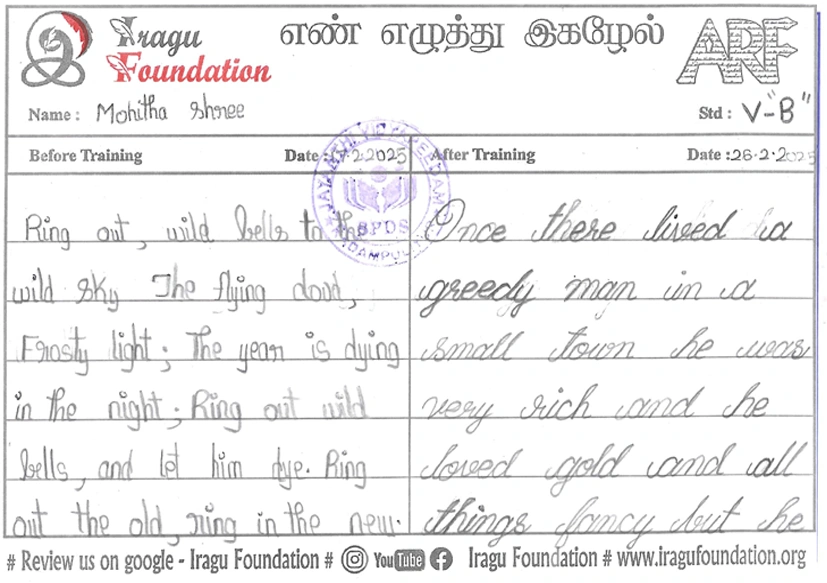 Iragu
Foundation
எண் எழுத்து இகழேல்
ARF
Name : Mohitha Shree
Std : V-"B"
Before Training
Date :17.2.2025
After Training
Date :26.2.2025
SPDS
Ring out, wild bells to the
wild sky The flying cloud,
Frosty light; The year is dying
in the night; Ring out wild
bells, and let him dye. Ring
out the old, ring in the new.
Once there lived a
greedy man in a
small town he was
very rich and he
loved gold and all
things fancy but he
# Review us on google - Iragu Foundation # YouTube Iragu Foundation # www.iragufoundation.org